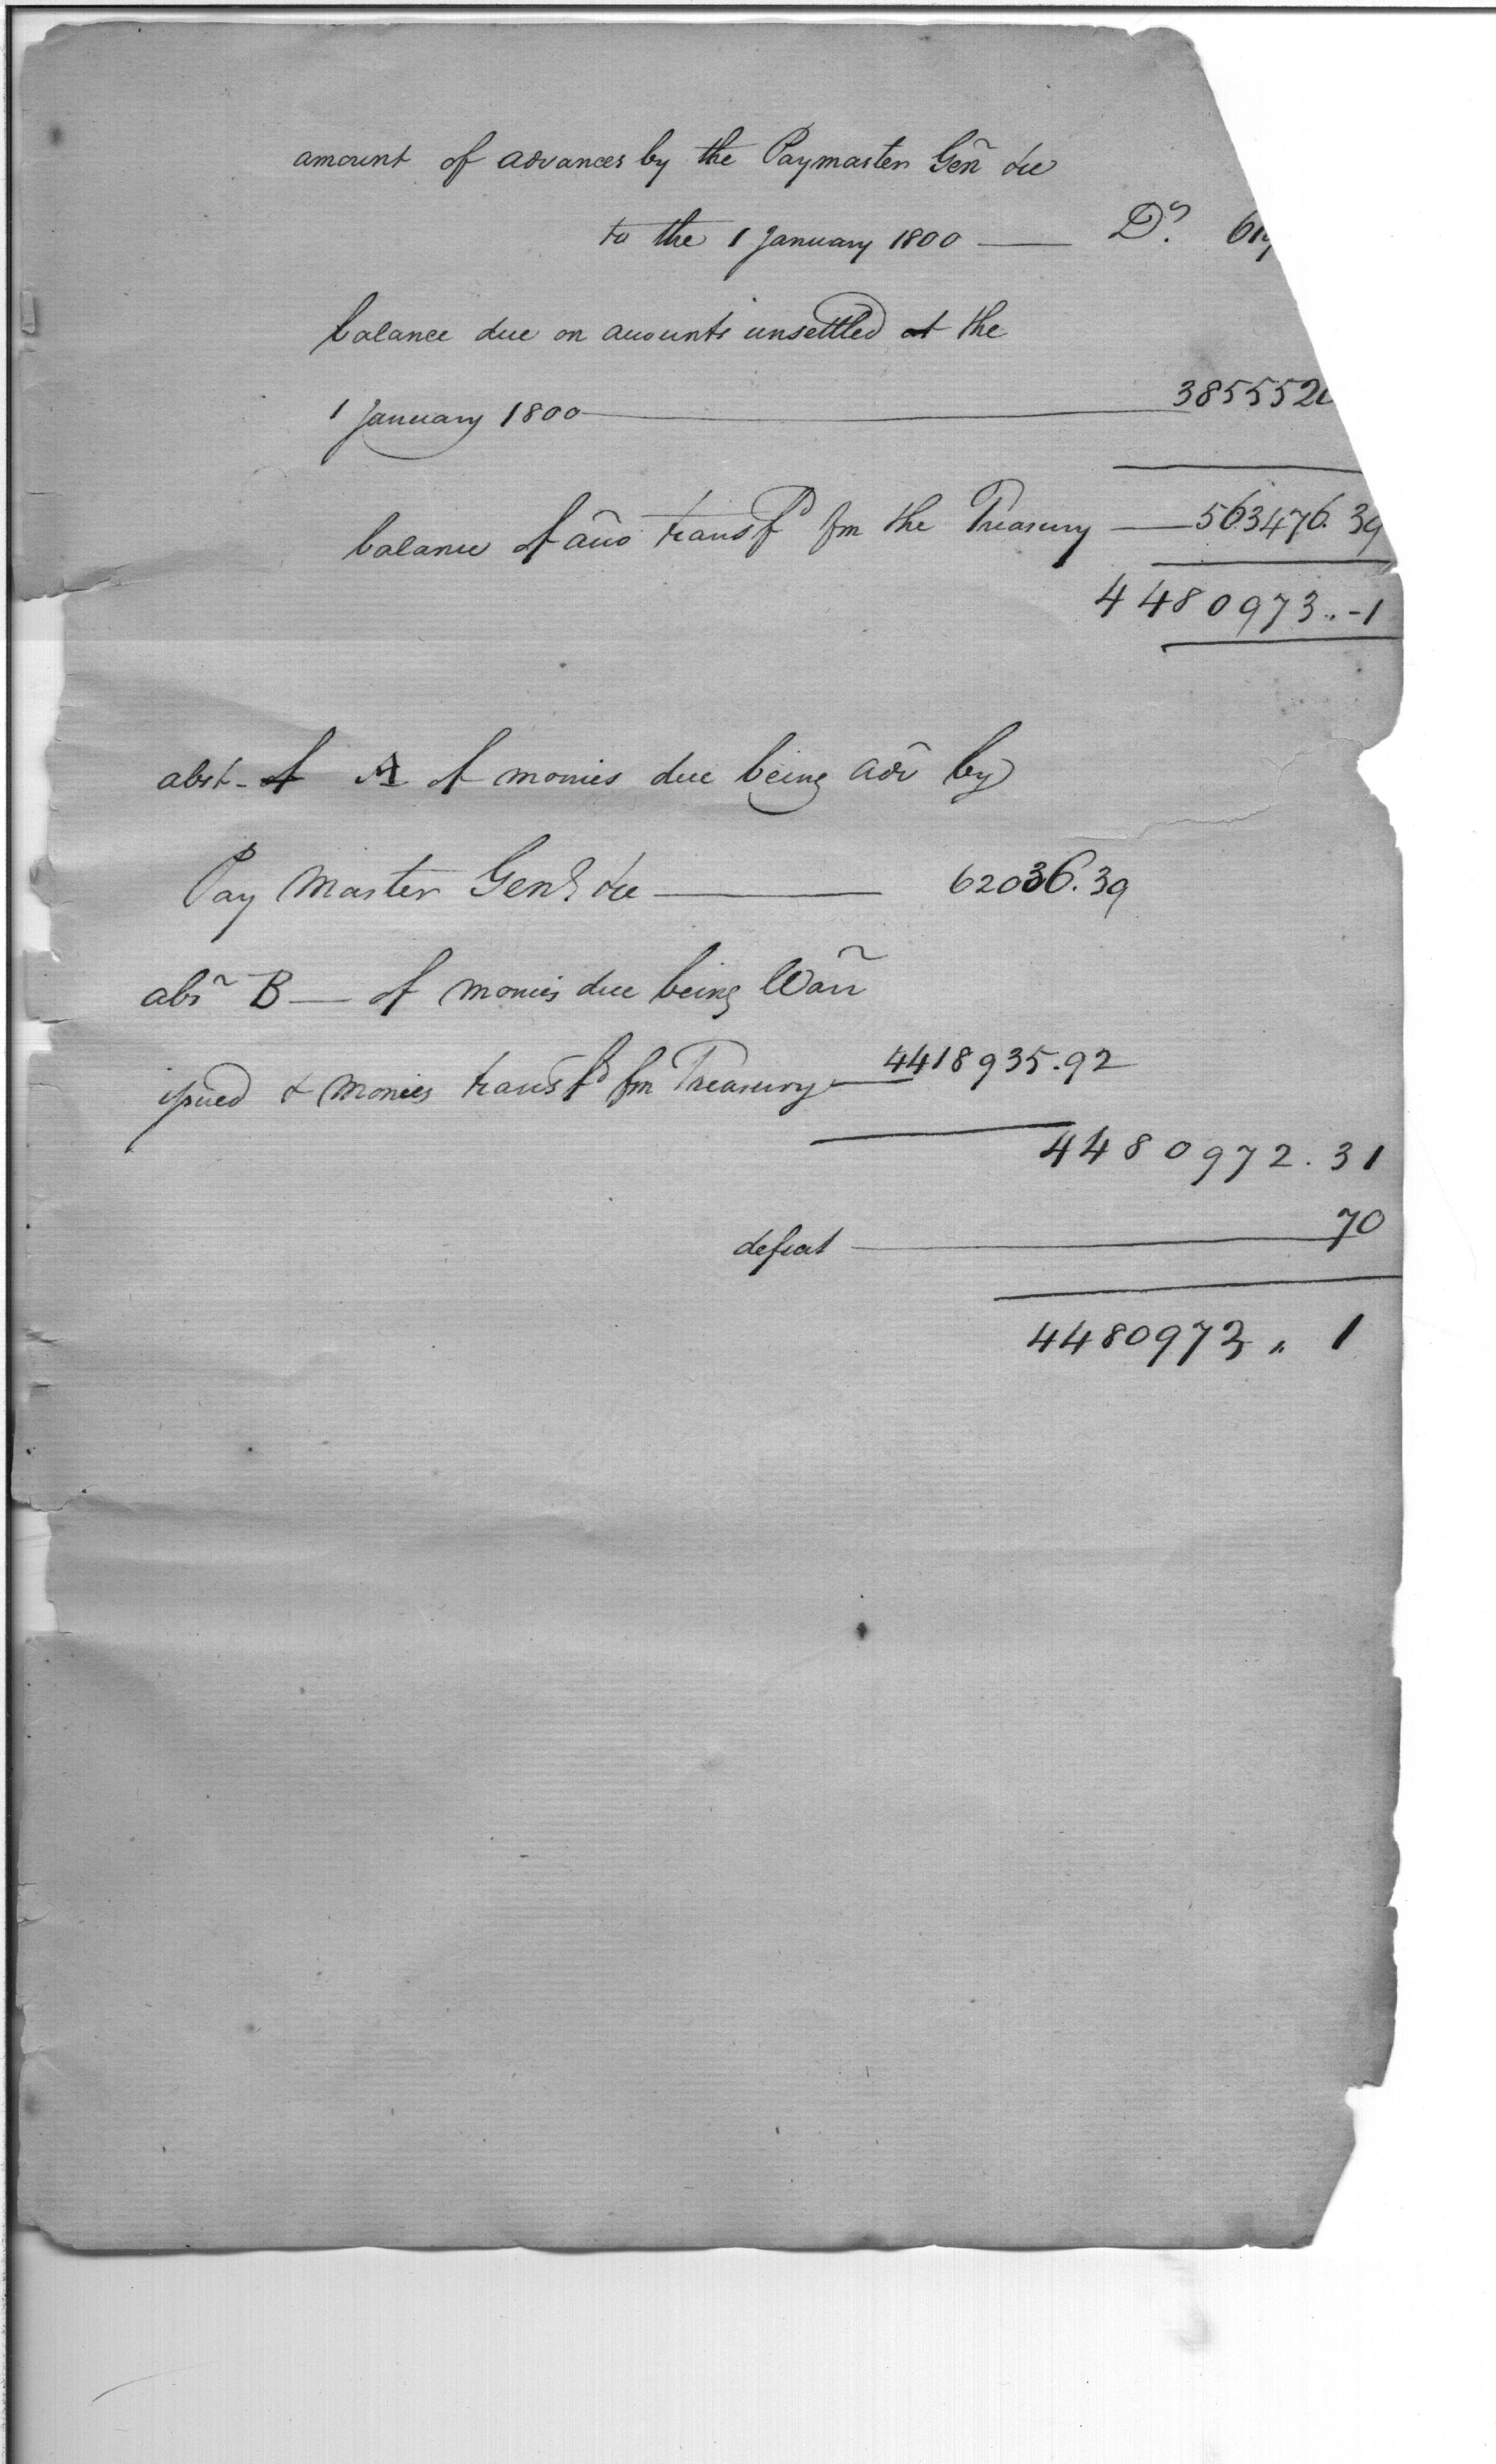 amount of advances by the Paymaster Geñ &c
to the 1 January 1800 — Ds. 61
balance due on accounts unsettled at the
1 January 1800 — 385552
balance of acco transfd fm the Treasury — 563476.39
4480973..-1
abst-of A of monies due being adv by
Pay Master Genl &c — 62036.39
abst B — of monies due being Warr
issued & Monies transfd fm Treasury — 4418935.92
4480972.31
deficit — 70
4480973,, 1